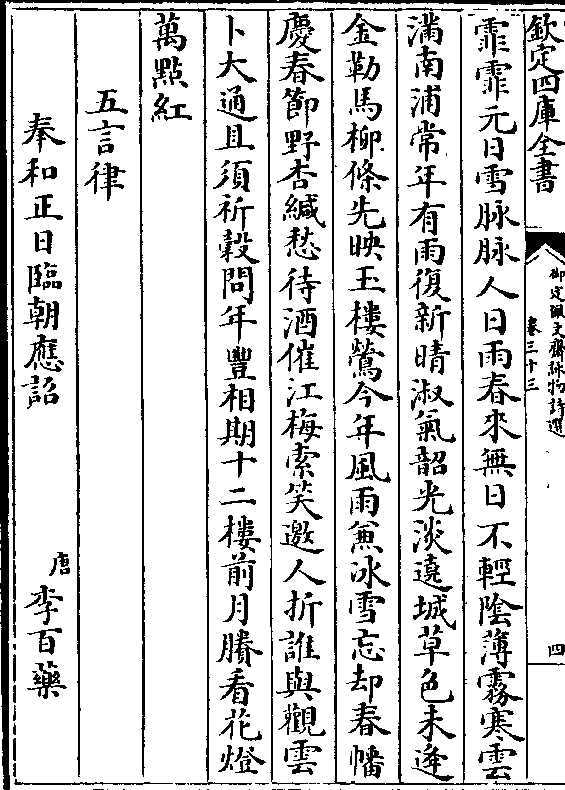 欽定四庫全書
御定佩文齋詠物詩選
卷三十三
四
霏霏元日雪脉脉人日雨春來無日不輕陰薄霧寒雲
滿南浦常年有雨復新晴淑氣韶光淡遶城草色未逢
金勒馬柳條先映玉樓鶯今年風雨兼冰雪忘却春幡
慶春節野杏緘愁待酒催江梅索笑邀人折誰與觀雲
卜大通且須祈穀問年豐相期十二樓前月賸看花燈
萬點紅
五言律
奉和正日臨朝應詔
唐 李百藥